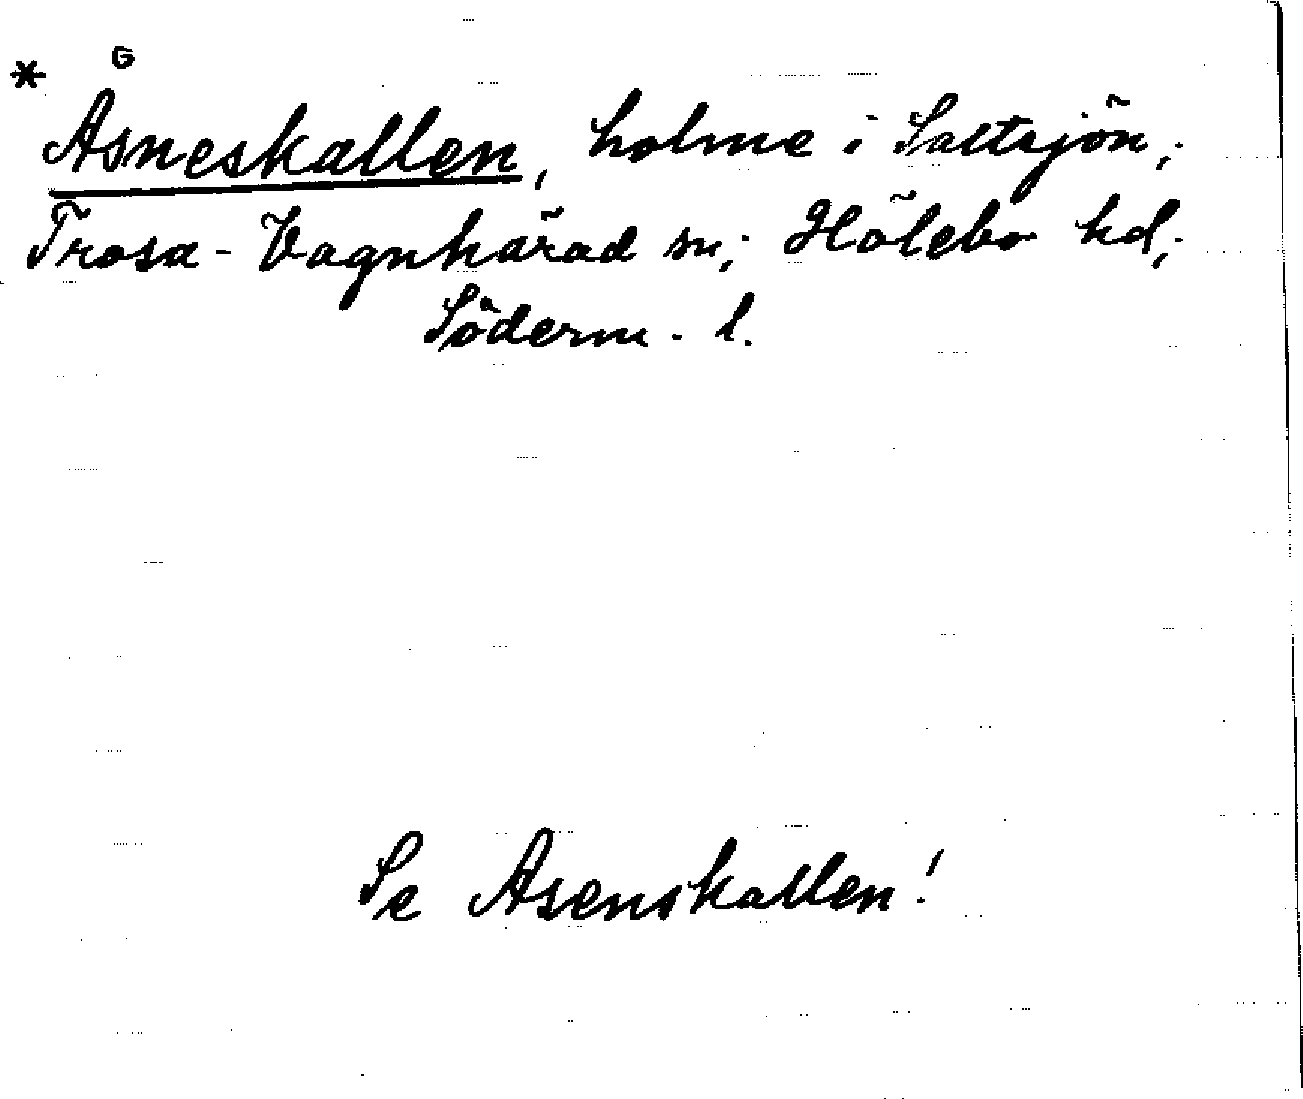 * Åsneskallen, holme i Saltsjön,
Trosa-Vagnhärad sn, Hölebo hd,
Söderm. l.
Se Asenskallen!